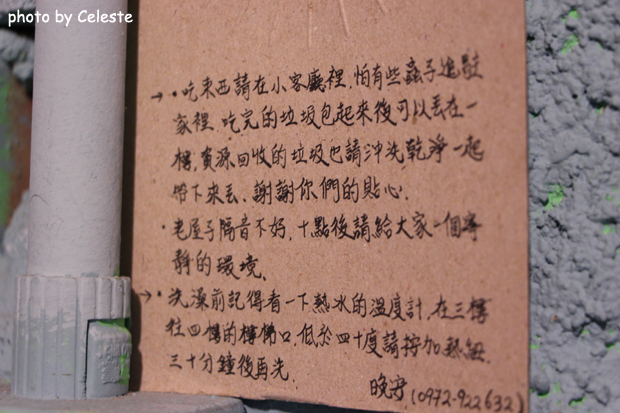 photo by Celeste
→ ·吃東西請在小客廳裡,怕有些蟲子進駐
家裡.吃完的垃圾包起來後可以丟在一
樓,資源回收的垃圾也請沖洗乾淨一起
帶下來丟.謝謝你們的貼心.
·老屋子隔音不好,十點後請給大家一個寧
靜的環境.
→ ·洗澡前記得看一下熱水的溫度計,在三樓
往四樓的樓梯口,低於四十度請按加熱鈕
三十分鐘後再洗.
晚安 (0972-922632)